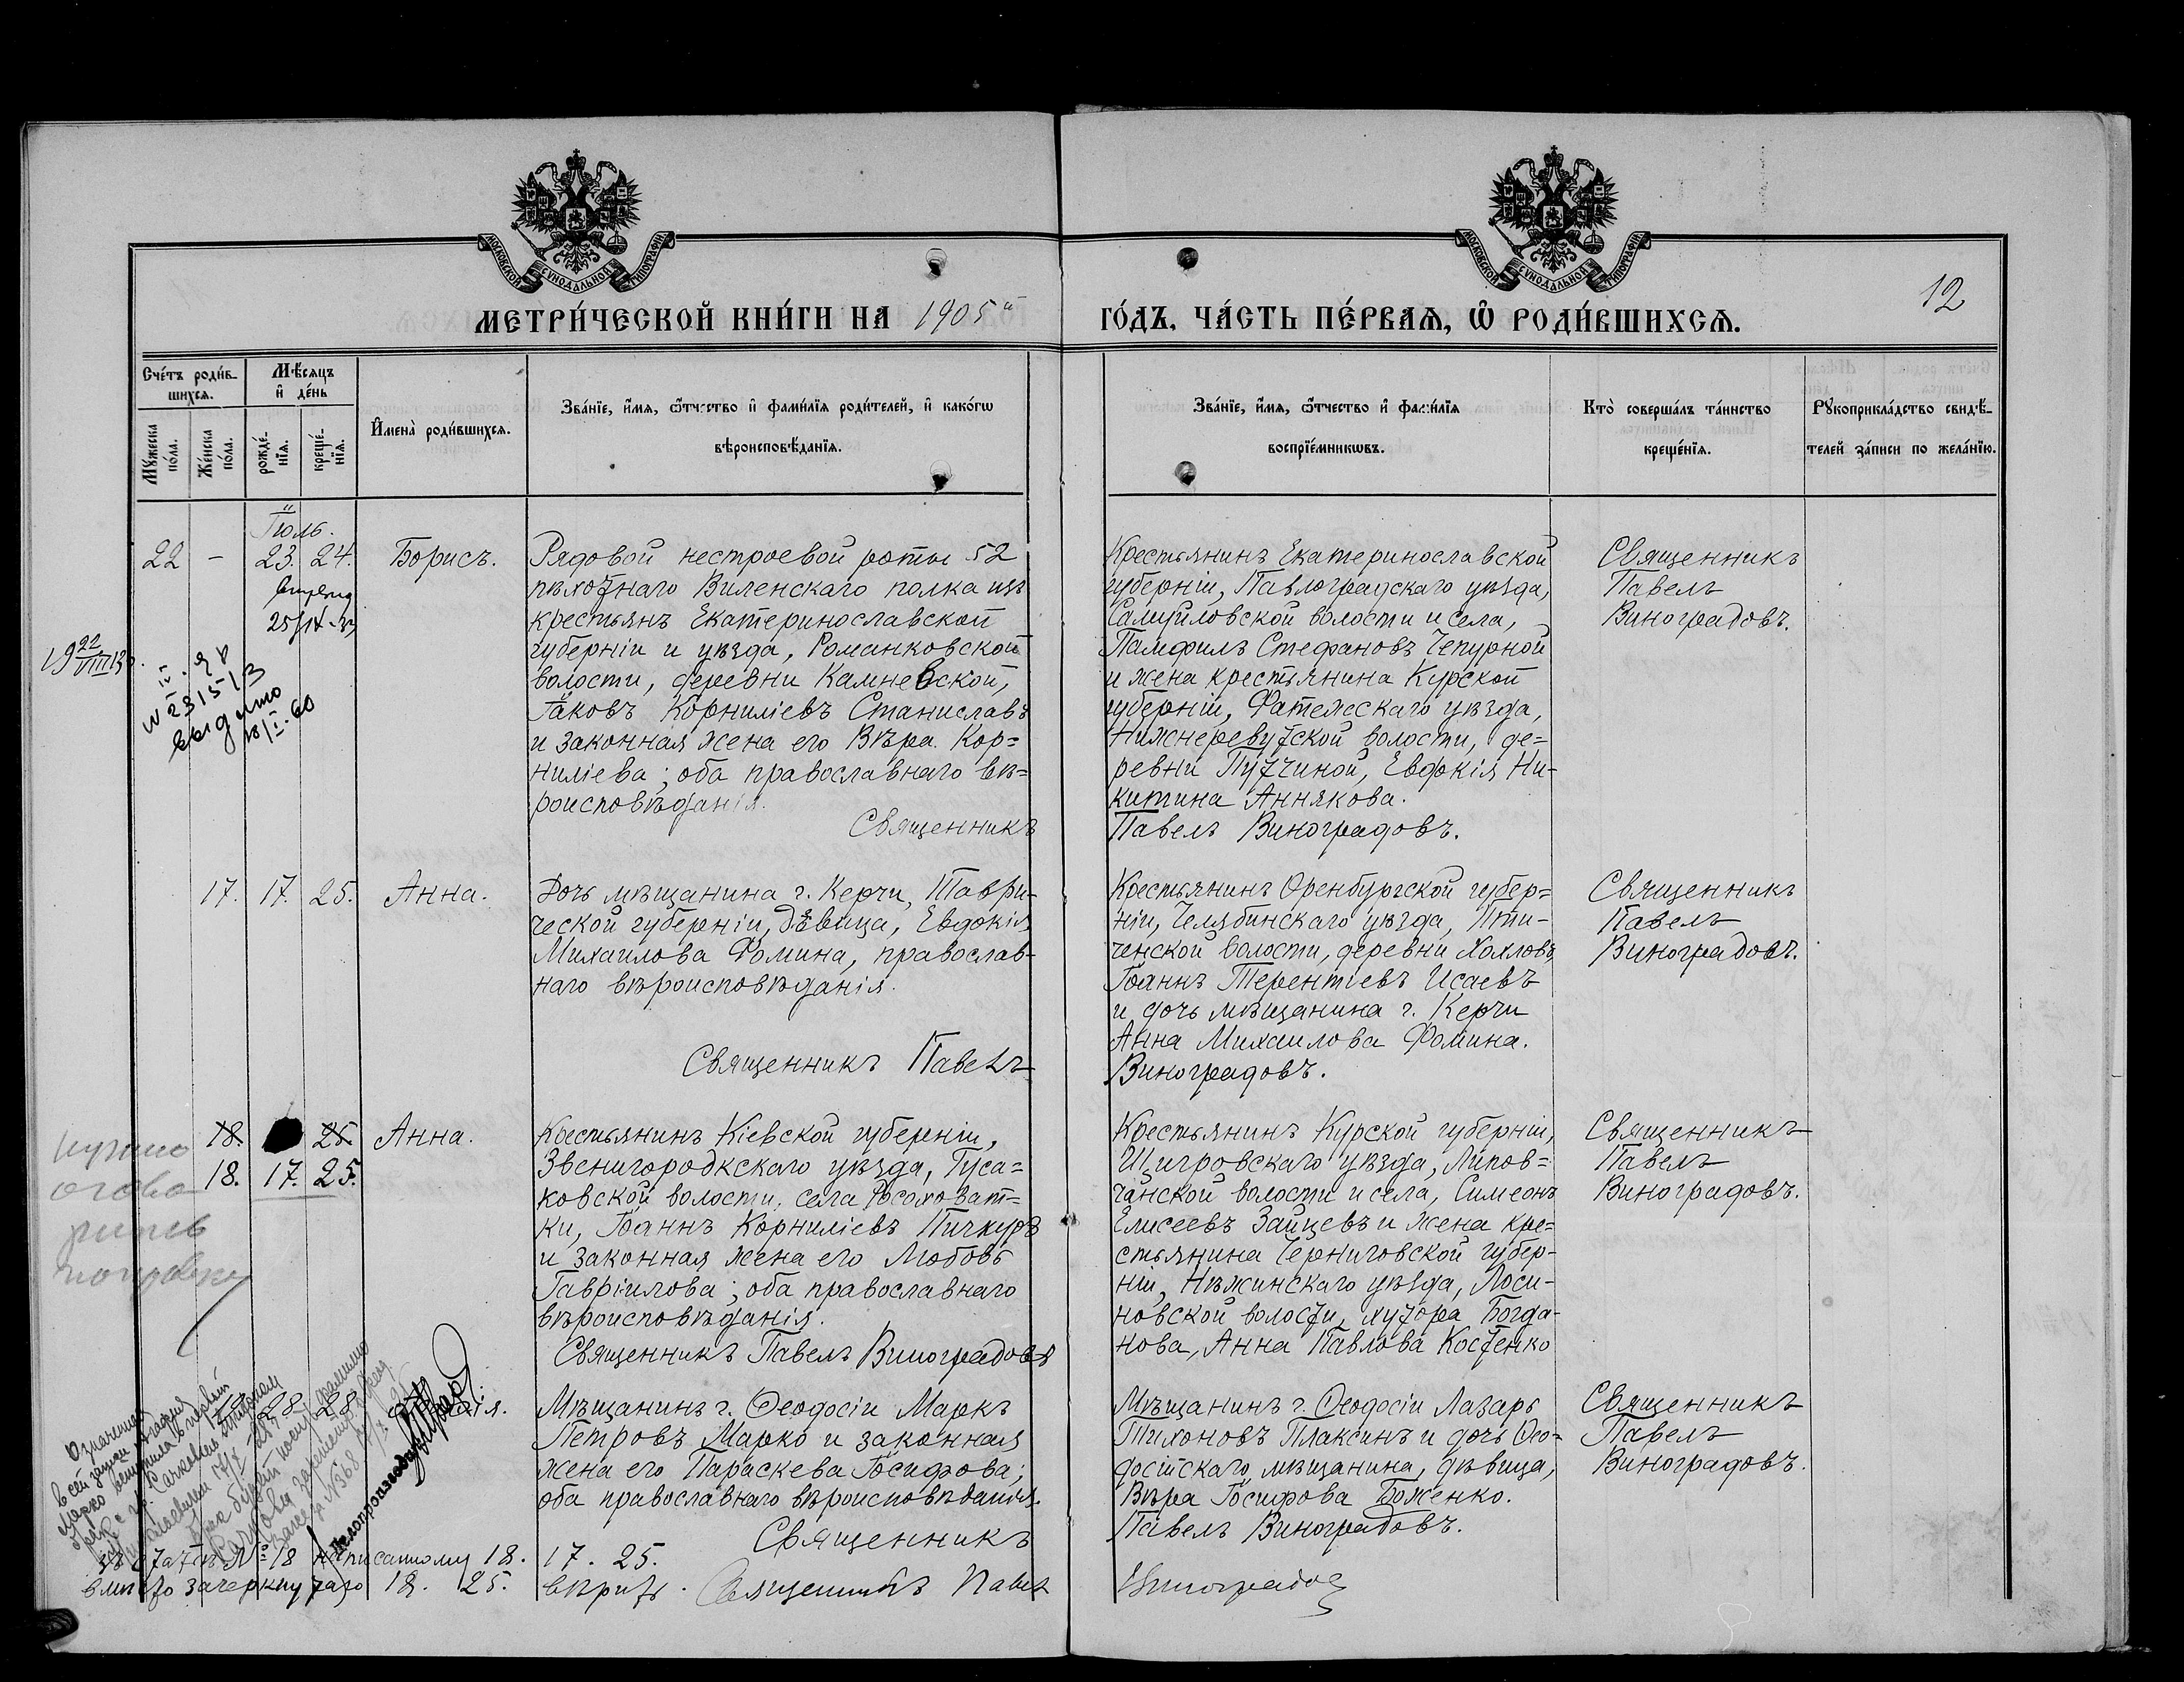 МОСКОВСКОЙ СѴНОДАЛЬНОЙ ТИПОГРАФІИ
МОСКОВСКОЙ СѴНОДАЛЬНОЙ ТИПОГРАФІИ
12
МЕТРИ́ЧЕСКОЙ КНИ́ГИ НА 1905й
ГО́ДЪ, ЧА́СТЬ ПЕ́РВАѦ, Ѽ РОДИ́ВШИХСѦ.
Сче́тъ роди́в-
шихсѧ.
Мѣ́сѧцъ
и҆ де́нь
Мꙋ́жеска
по́ла.
Же́нска
по́ла.
рожде́-
нїѧ.
креще́-
нїѧ.
И҆мена̀ роди́вшихсѧ.
Зва́нїе, и҆́мѧ, ѻ҆́тчество и҆ фами́лїѧ роди́телей, и҆ како́гѡ
вѣроисповѣ́данїѧ.
Зва́нїе, и҆́мѧ, ѻ҆́тчество и҆ фами́лїѧ
воспрїе́мникѡвъ.
Кто̀ соверша́лъ та́инство
креще́нїѧ.
Рꙋкоприкла́дство свидѣ́-
телей за́писи по жела́нїю.
Іюль.
22 - 23. 24. Борисъ.
Рядовой нестроевой роты 52
пѣхотнаго Виленскаго полка изъ
крестьянъ Екатеринославской
губерніи и уѣзда, Романковской
волости, деревни Камневской,
Іаковъ Корниліевъ Станиславъ
и законная жена его Вѣра Кор=
ниліева; оба православнаго вѣ=
роисповѣданія.
Священникъ
Крестьянинъ Екатеринославской
губерніи, Павлоградскаго уѣзда,
Самуйловской волости и села,
Памфилъ Стефановъ Чепурной
и жена крестьянина Курской
губерніи, Фатежскаго уѣзда,
Нижнеревутской волости, де=
ревни Путчиной, Евдокія Ни-
китина Аннякова.
Павелъ Виноградовъ.
Священникъ
Павелъ
Виноградовъ.
N 231513
выдано
18/I-60
17. 17. 25. Анна.
Дочь мѣщанина г. Керчи, Таври-
ческой губерніи, дѣвица, Евдокія
Михаилова Фомина, православ-
наго вѣроисповѣданія.
Священникъ Павелъ
Крестьянинъ Оренбургской губер=
ніи, Челябинскаго уѣзда, Пти-
ченской волости, деревни Хохловъ,
Іоаннъ Терентіевъ Исаевъ
и дочь мѣщанина г. Керчи
Анна Михаилова Фомина.
Виноградовъ.
Священникъ
Павелъ
Виноградовъ.
18. 25. Анна.
18. 17. 25.
нужно
огово
рить
поправку
Крестьянинъ Кіевской губерніи,
Звенигородкскаго уѣзда, Гуса=
ковской волости, села Росоховат=
ки, Іоаннъ Корниліевъ Пичкуръ
и законная жена его Любовь
Гавріилова; оба православнаго
вѣроисповѣданія.
Священникъ Павелъ Виноградовъ
Крестьянинъ Курской губерніи,
Щигровскаго уѣзда, Липов=
чанской волости и села, Симеонъ
Елисеевъ Зайцевъ и жена кре=
стьянина Черниговской губер-
ніи, Нѣжинскаго уѣзда, Лоси-
новской волости, хутора Богда-
нова, Анна Павлова Костенко
Священникъ
Павелъ
Виноградовъ.
28 28
Мѣщанинъ г. Ѳеодосіи Маркъ
Петровъ Марко и законная
жена его Параскева Іосифова;
оба православнаго вѣроисповѣданія.
Священникъ
Мѣщанинъ г. Ѳеодосіи Лазарь
Тихоновъ Плаксинъ и дочь Ѳео-
досійскаго мѣщанина, дѣвица,
Вѣра Іосифова Боженко.
Павелъ Виноградовъ.
Священникъ
Павелъ
Виноградовъ.
Означенная
в сей записи
Делопроизводитель
статьѣ № 18 написанному 18. 17. 25.
вмѣсто зачеркнутаго 18. 25. вѣрить. Священникъ Павелъ Виноградовъ